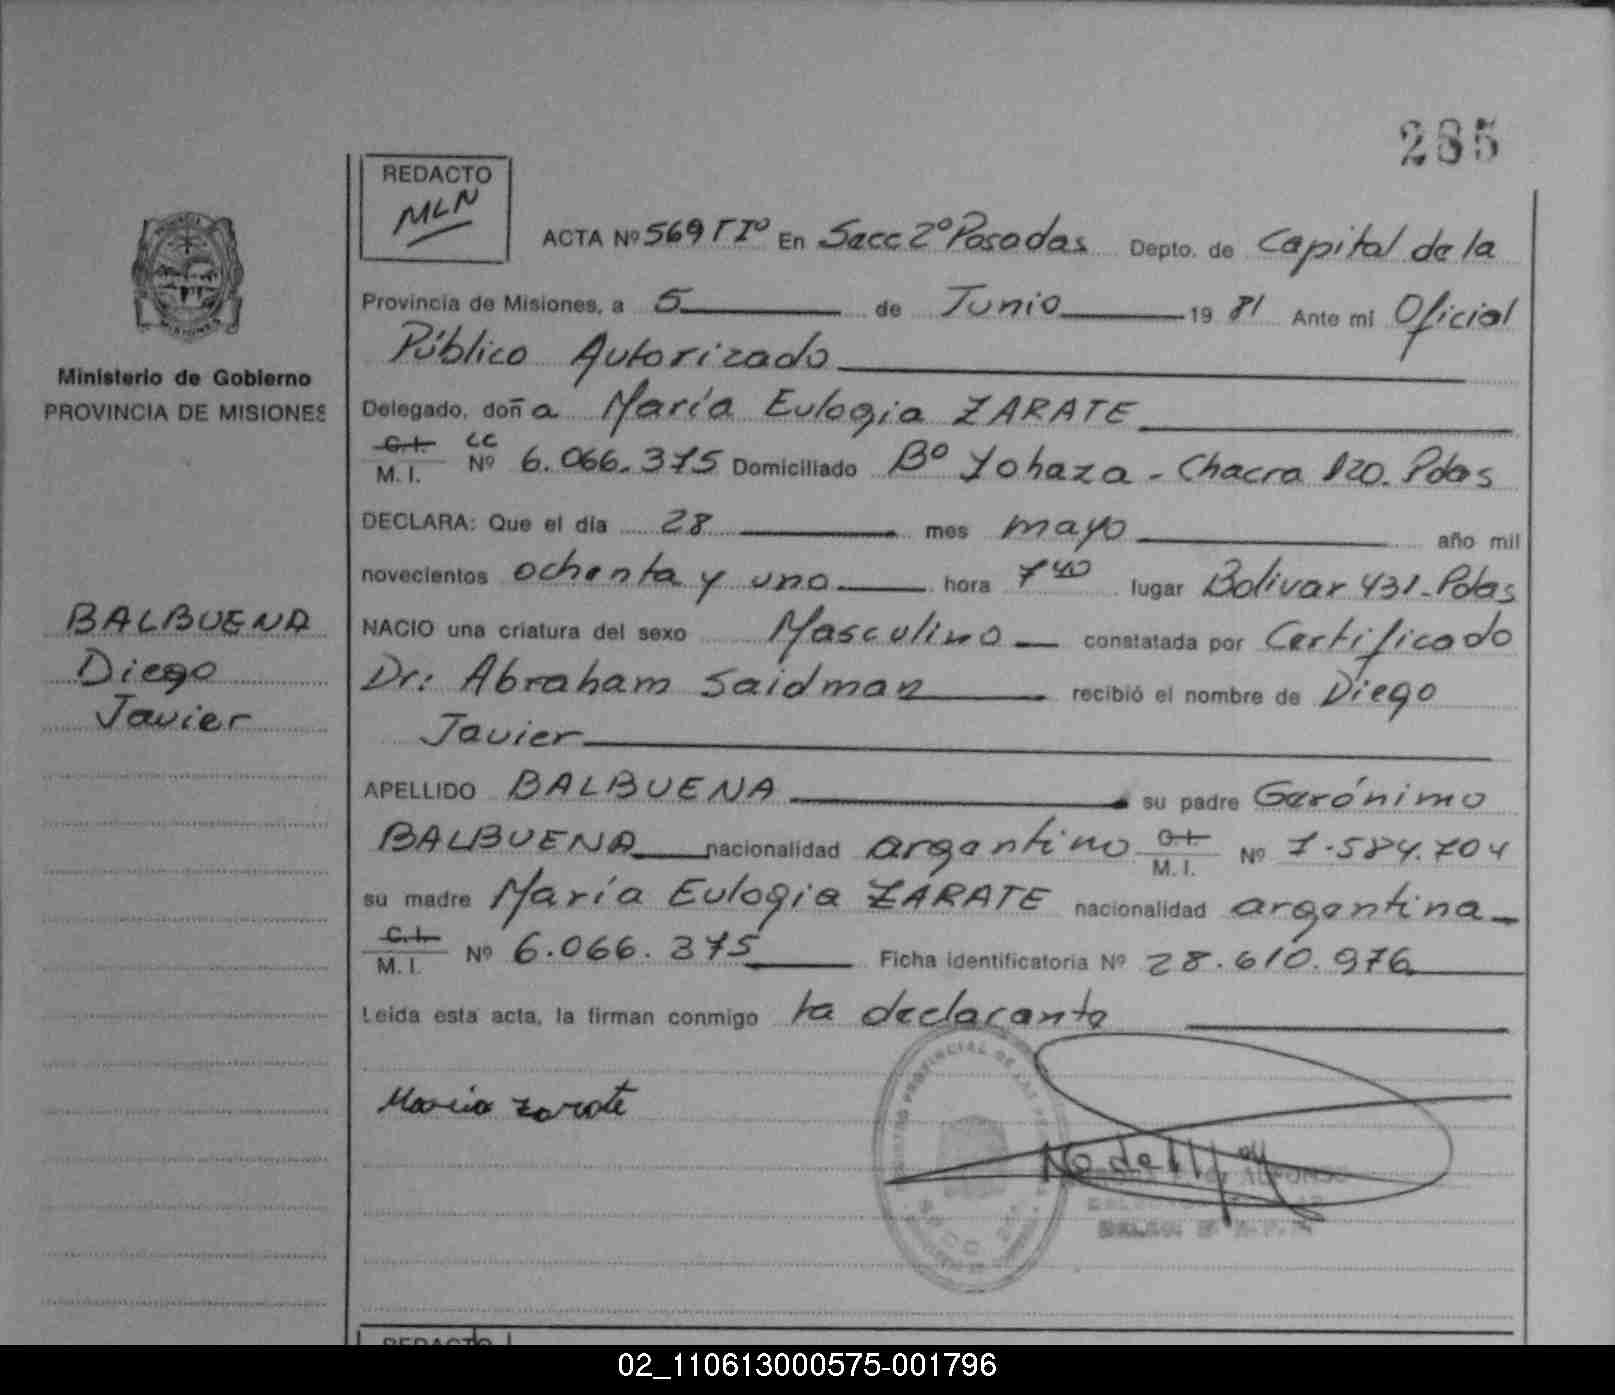 285
REDACTO
MLN
ACTA Nº 569 TIº En Secc 2º Posadas Depto. de Capital de la
Provincia de Misiones, a 5 de Junio 1981 Ante mi Oficial
Público Autorizado
Ministerio de Gobierno
PROVINCIA DE MISIONES
Delegado, doña María Eulogia ZARATE
C.I. M.I. LC Nº 6.066.375 Domiciliado Bº Yohaza - Chacra 120. Pdas
DECLARA: Que el día 28 mes mayo año mil
novecientos ochenta y uno hora 7 40 lugar Bolivar 431-Pdas
BALBUENA
Diego
Javier
NACIO una criatura del sexo Masculino constatada por Certificado
Dr: Abraham Saidman recibió el nombre de Diego
Javier
APELLIDO BALBUENA su padre Gerónimo
BALBUENA nacionalidad argentino C.I. M.I. Nº 7.584.704
su madre María Eulogia ZARATE nacionalidad argentina
C.I. M.I. Nº 6.066.375 Ficha identificatoria Nº 28.610.976
Leída esta acta, la firman conmigo la declarante
Maria Zarate
REDACTO
02_110613000575-001796